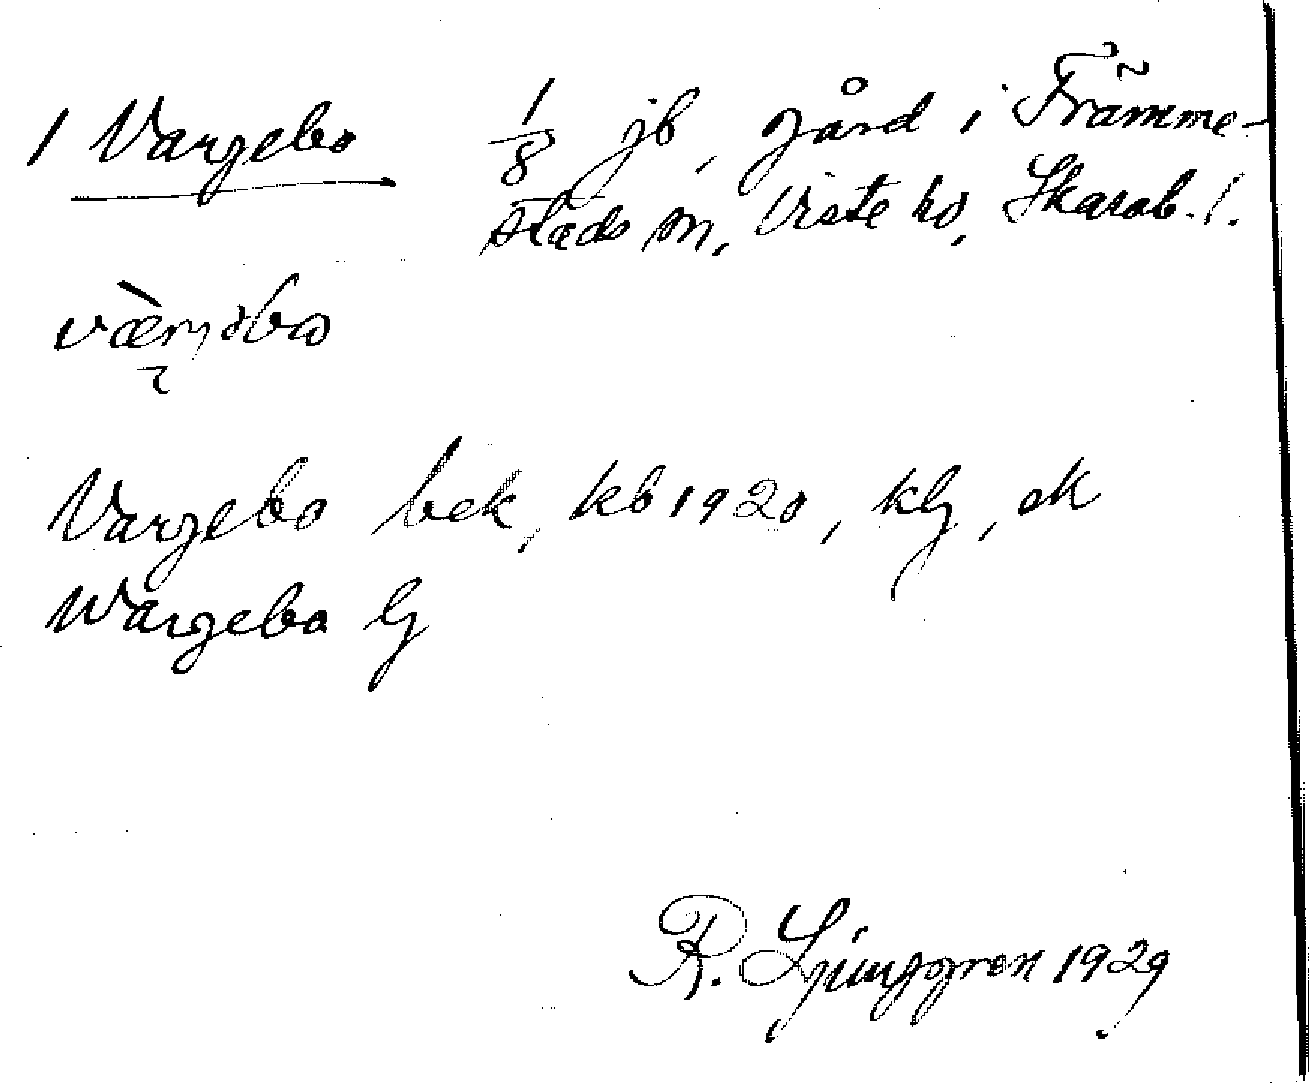 1 Vargebo 1/8 jb, gård i Främme-
stads sn, Viste hd, Skarab. l.
værjəbo
Vargebo bek, kb 1920, klg, ek
Wargebo G
R. Ljunggren 1929